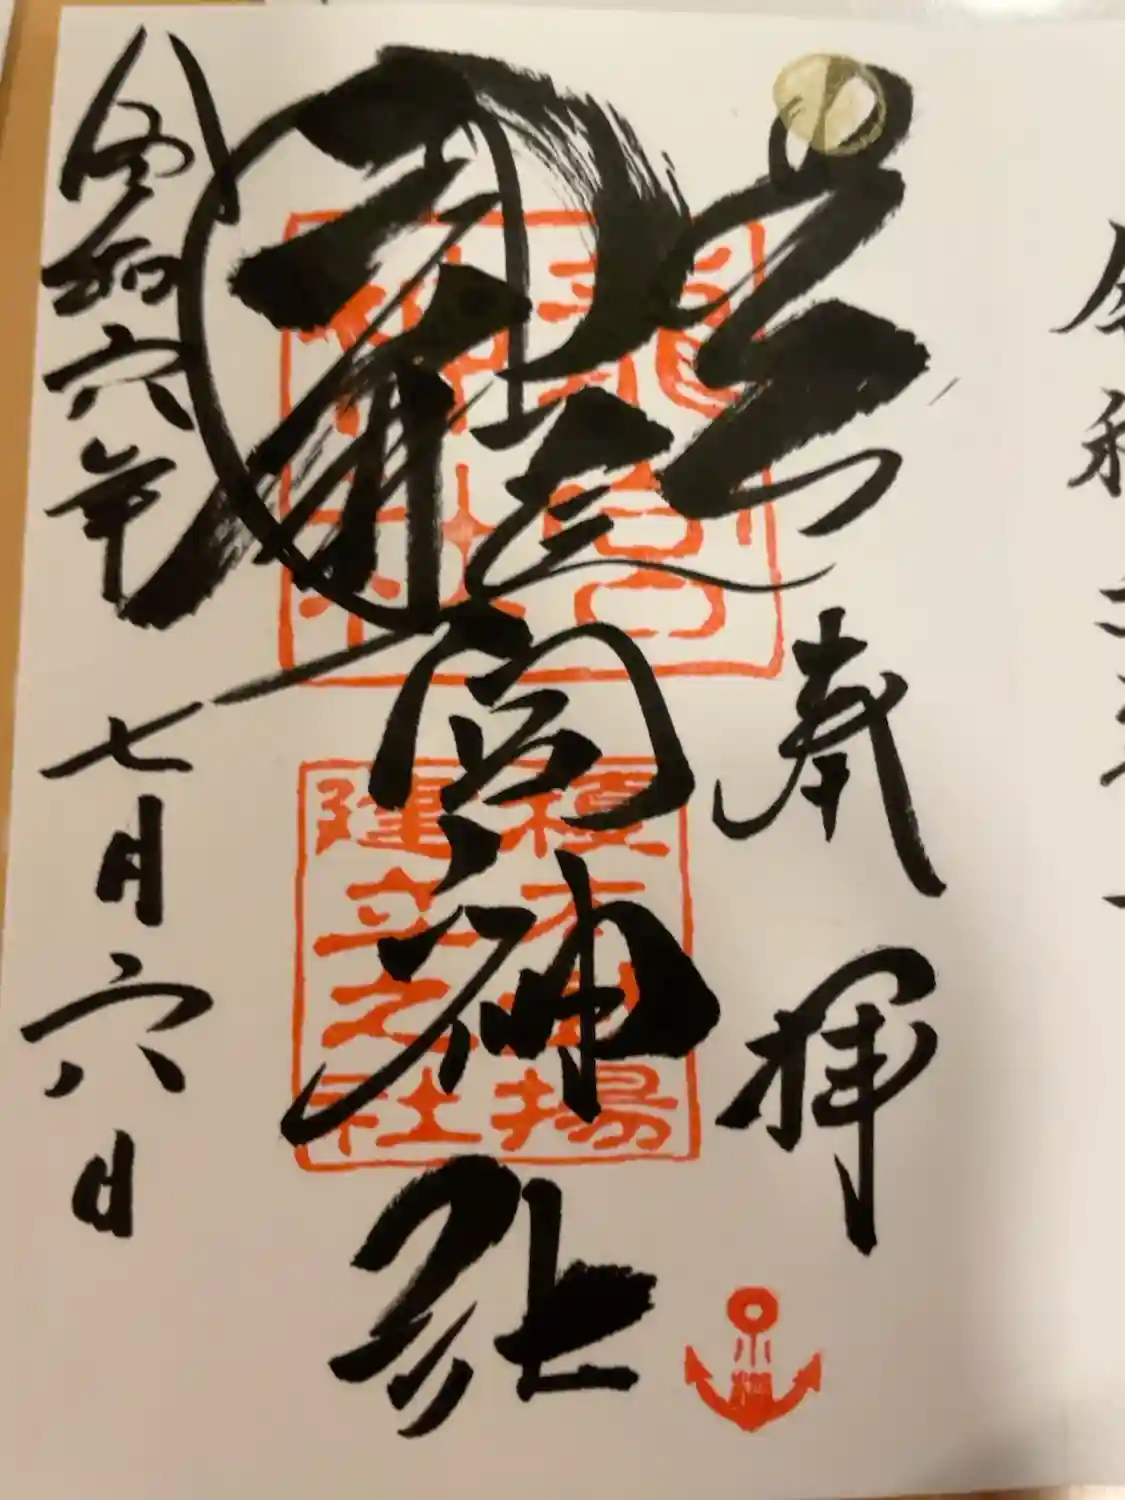 令和
奉拝
龍宮神社
龍宮
神社
榎本武揚
建立之社
小樽
令和六年七月六日